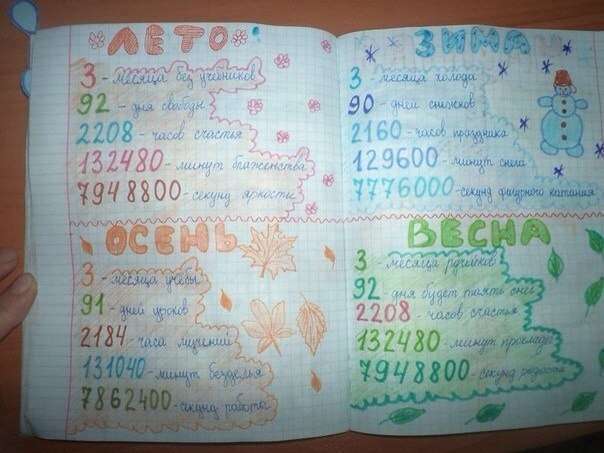 ЛЕТО
3 - месяца без учебников
92 - дня свободы
2208 - часов счастья
132480 - минут блаженства
7948800 - секунд яркости
ЗИМА
3 - месяца холода
90 - дней снежков
2160 - часов праздника
129600 - минут снега
7776000 - секунд фигурного катания
ОСЕНЬ
3 - месяца учёбы
91 - дней уроков
2184 - часа лишений
131040 - минут безделья
7862400 - секунд работы
ВЕСНА
3 месяца ручейков
92 дня будет таять снег
2208 - часов счастья
132480 - минут прохлады
7948800 - секунд радости